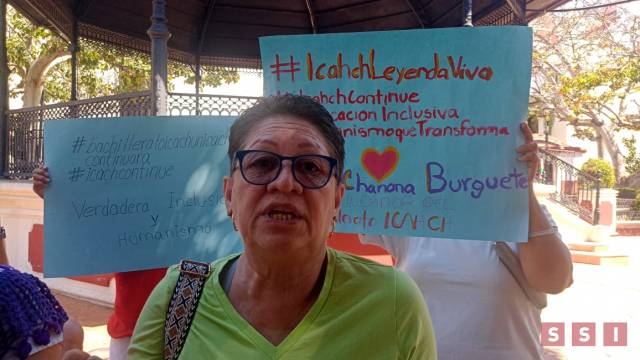 #bachilleratoicachunicach
continuará
#icachcontinue
Verdadera Inclusión
y
Humanismo
#IcahchLeyendaViva
#IcahchContinue
caciónInclusiva
nismoqueTransforma
Chanona Burguete
ICNCH
SSI